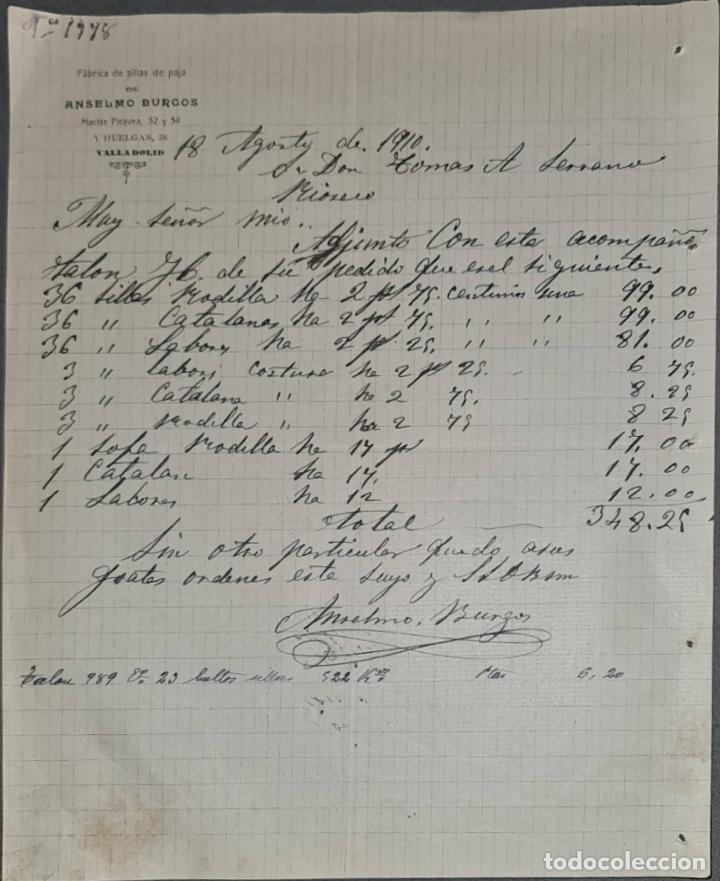 1978
Fábrica de sillas de paja
DE
ANSELMO BURGOS
Macías Picavea, 52 y 54
Y HUELGAS, 28
VALLADOLID
18 Agosty de. 1910.
Sr Don Tomas A Serrano
Rioseco
Muy Señor mio..
Adjunto Con esta acompaño
talon de su pedido que es el siguiente,
36 sillas Rodilla ha 2 pt 75. centimos una 99.00
36 " Catalanas ha 2 pt 75. " " 99.00
36 " Labores ha 2 pt 25. " " 81.00
3 " labors costura ha 2 pt 25. 6 75.
3 " Catalana " ha 2 75. 8.25
3 " Rodilla " ha 2 75 8 25
1 Sofa Rodilla ha 17 pt 17.00
1 Catalan ha 17. 17.00
1 Labores ha 12 12.00
total 348.25
Sin otro particular quedo a sus
gratas ordenes este suyo y
Anselmo. Burgos
talon 989 23 bultos sillas 522 Kos 6,20
todocoleccion